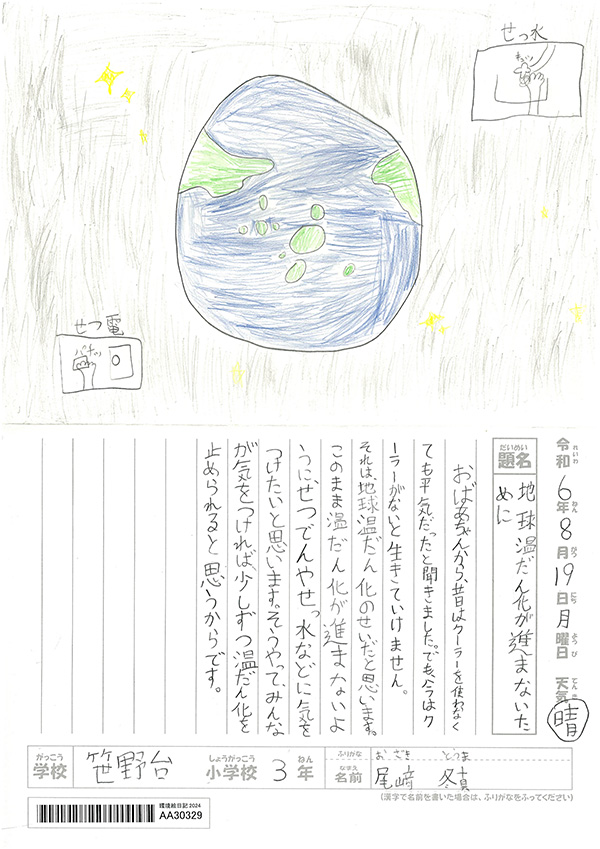 せつ水
キュッ
せつ電
パチッ
令和6年8月19日月曜日 天気 晴
れいわ ねん がつ にち ようび てんき
だいめい
題名
地球温だん化が進まないた
めに
おばあちゃんから、昔はクーラーを使わなく
ても平気だったと聞きました。でも、今はク
ーラーがないと生きていけません。
それは、地球温だん化のせいだと思います。
このまま温だん化が進まないよ
うに、せつでんやせっ水などに気を
つけたいと思います。そうやって、みんな
が気をつければ、少しずつ温だん化を
止められると思うからです。
がっこう しょうがっこう ねん
学校 笹野台 小学校 3年
ふりがな おざき とうま
なまえ
名前 尾﨑 冬真
(漢字で名前を書いた場合は、ふりがなをふってください)
環境絵日記2024
AA30329